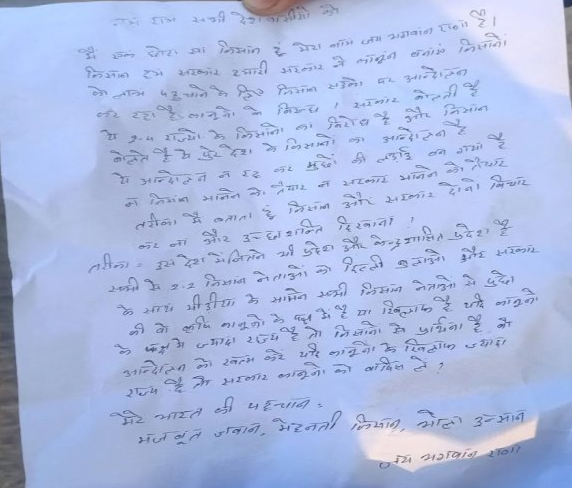 राम राम सभी देशवासीयो को
मैं एक छोटा सा किसान हूं मेरा नाम जय भगवान राणा है।
किसान हम सरकार हमारी सरकार ने कानून बनाऐ किसानों
को लाभ पहुचाने के लिए किसान सड़को पर आन्दोलन
कर रहा है कानूनो के विरुध। सरकार बोलती है
ये 2-4 राज्यो के किसानों का विरोध है और किसान
बोलत है ये पुरे देश के किसानो का आन्दोलन है
ये आन्दोलन न रह कर मुछों की लड़ाई बन गया है
न किसान मानने को तैयार न सरकार मानने को तैयार
तरीका मैं बताता हूं किसान और सरकार दोनो विचार
कर ना और शक्ति दिखाना।
तरीका = इस देश में जितने भी प्रदेश और केन्द्रशासित प्रदेश है
सभी से 2-2 किसान नेताओं को दिल्ली बुलाओ और सरकार
के साथ मीडीया के सामने सभी किसान नेताओ से पुछो
की वो कृषि कानूनो के पक्ष में है या खिलाफ है यदि कानूनो
के पक्ष में ज्यादा राज्य है तो किसानो से प्रार्थना है, वो
आन्दोलन को खत्म करे यदि कानूनो के खिलाफ ज्यादा
राज्य है तो सरकार कानूनो को वापिस ले?
मेरे भारत की पहचान =
मजबूत जवान, मेहनती किसान, भोला इन्सान
जय भगवान राणा